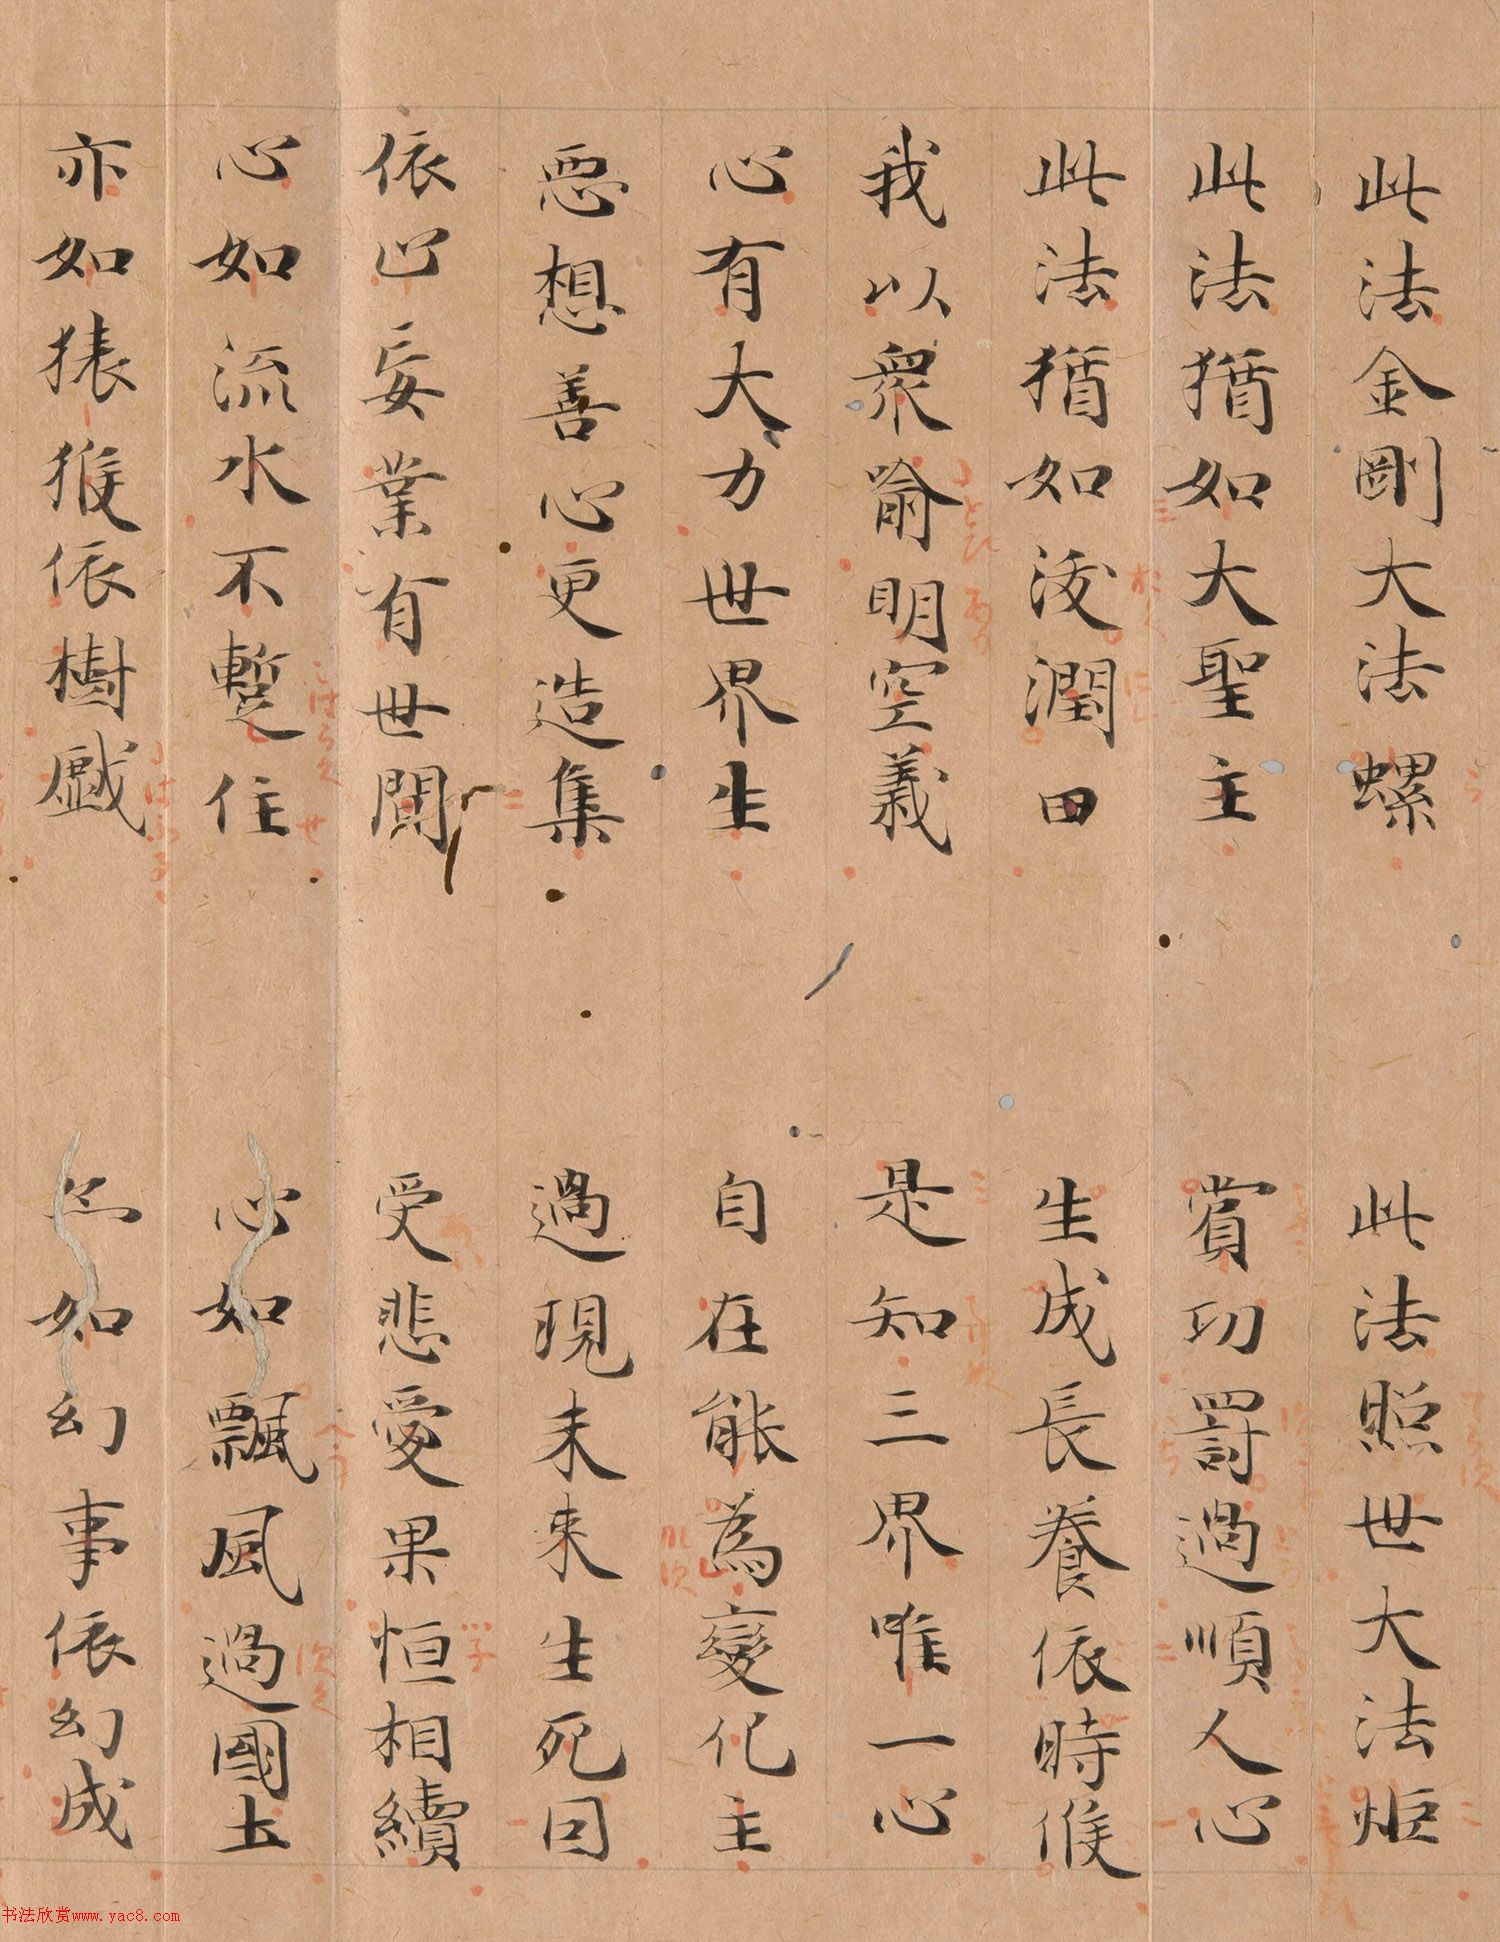 此法金剛大法螺　此法照世大法炬
此法猶如大聖主　賞功罰過順人心
此法猶如沃潤田　生成長養依時候
我以衆喻明空義　是知三界唯一心
心有大力世界生　自在能為變化主
惡想善心更造集　過現未来生死因
依止妄業有世間　受悲愛果恒相續
心如流水不暫住　心如飄風過國土
亦如猿猴依樹戯　亦如幻事依幻成
书法欣赏www.yac8.com